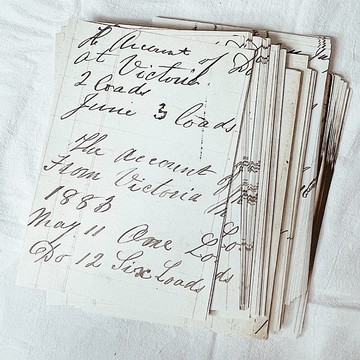 The Account of Do
at Victoria
2 Loads
June 3 loads
The Account of
From Victoria
1883
May 11 One Lo
Do 12 Six Loads